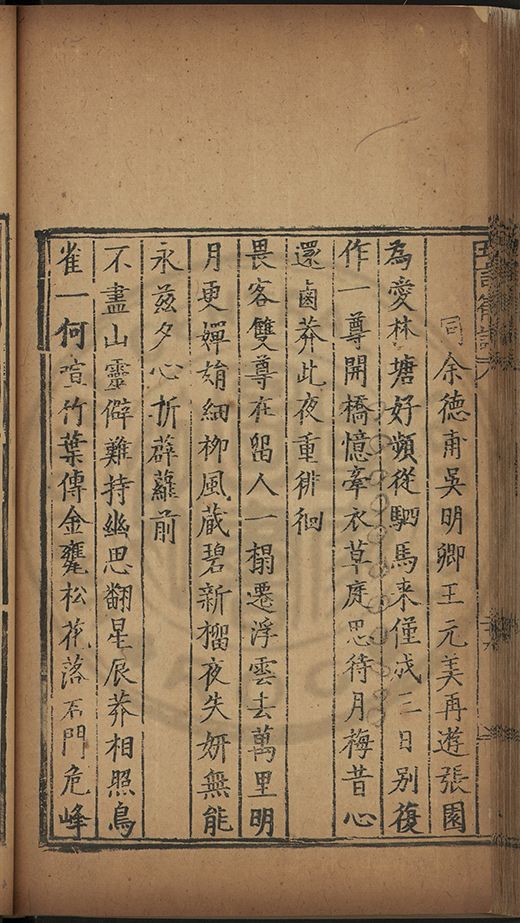 同余德甫吳明卿王元美再遊張園
為愛林塘好頻從駟馬来僅成三日别復
作一尊開橋憶牽衣草庭思待月梅昔心
還鹵莽此夜重徘徊
畏客雙尊在留人一榻遷浮雲去萬里明
月更嬋娟細柳風蔵碧新榴夜失妍無能
永兹夕心折薜蘿前
不盡山靈僻難持幽思翻星辰莽相照鳥
雀一何喧竹葉傳金甕松花落石門危峰